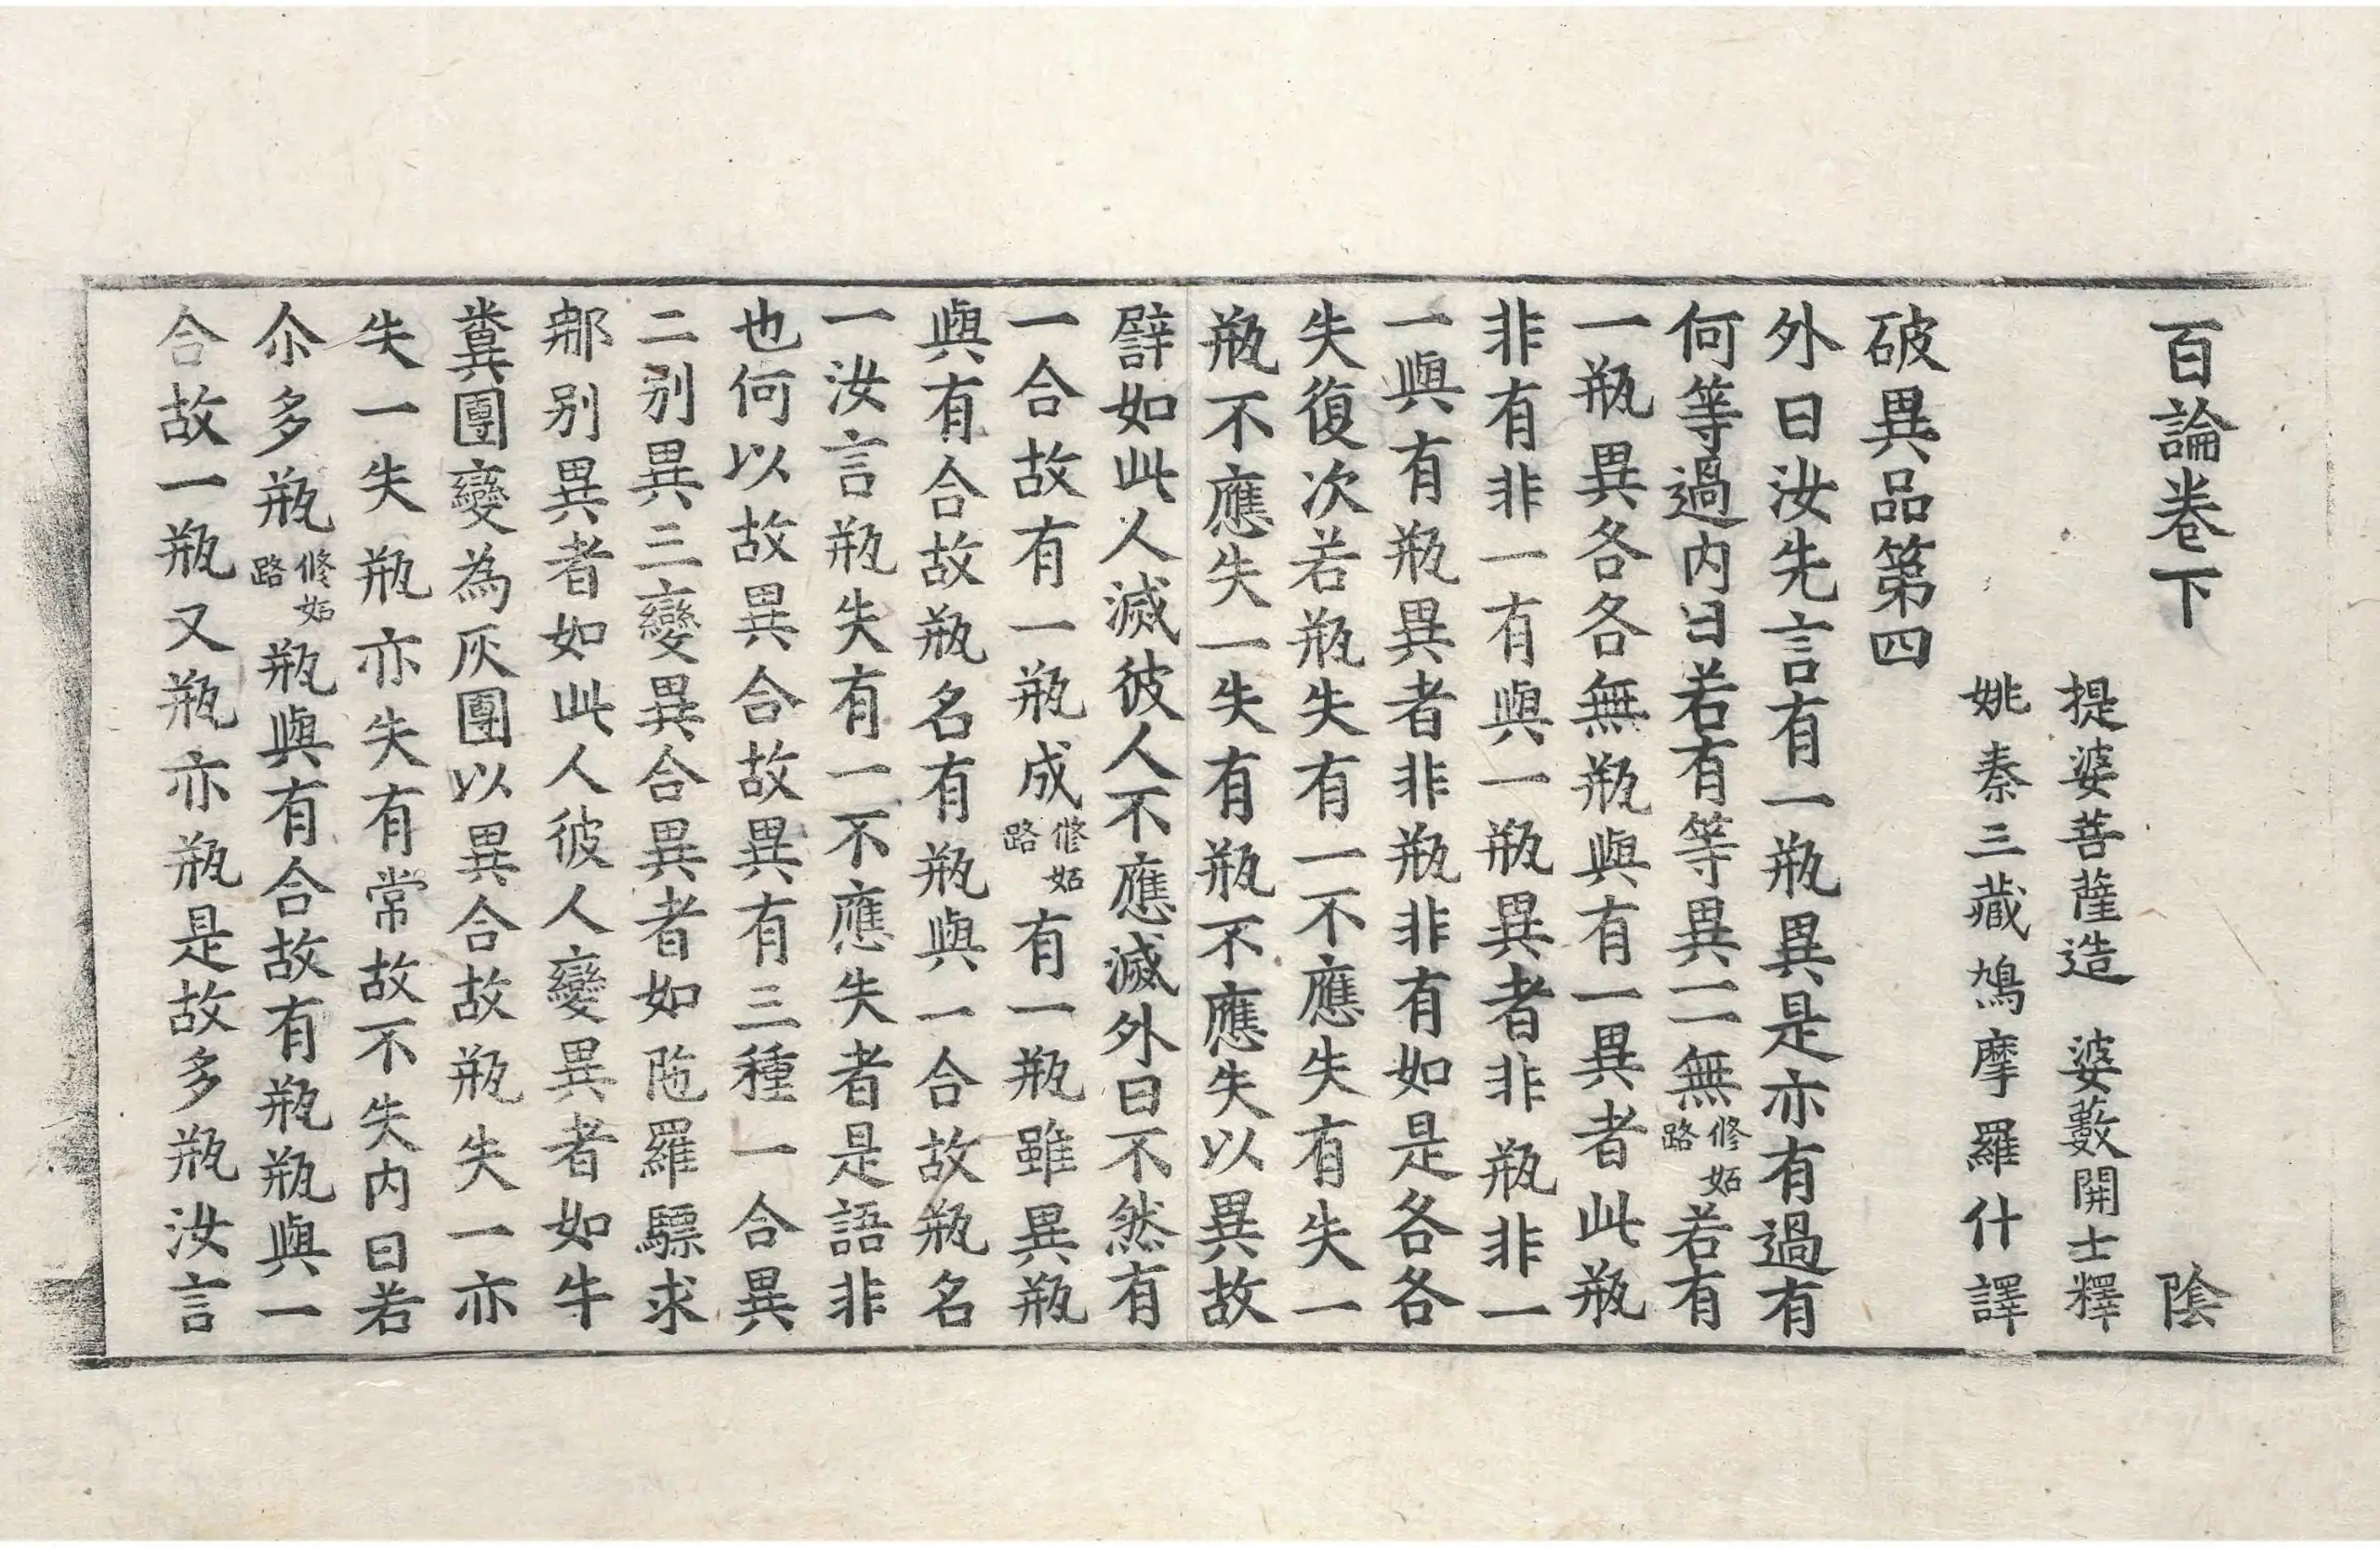 百論卷下 陰
提婆菩薩造 婆藪開士釋
姚秦三藏鳩摩羅什譯
破異品第四
外曰汝先言有一瓶異是亦有過有
何等過内曰若有等異一一無修妬路若有
一瓶異各各無瓶與有一異者此瓶
非有非一有與一瓶異者非瓶非一
一與有瓶異者非瓶非有如是各各
失復次若瓶失有一不應失有失一
瓶不應失一失有瓶不應失以異故
譬如此人滅彼人不應滅外曰不然有
一合故有一瓶成修妬路有一瓶雖異瓶
與有合故瓶名有瓶與一合故瓶名
一汝言瓶失有一不應失者是語非
也何以故異合故異有三種一合異
二別異三變異合異者如陁羅驃求
那別異者如此人彼人變異者如牛
糞團變為灰團以異合故瓶失一亦
失一失瓶亦失有常故不失内曰若
尒多瓶修妬路瓶與有合故有瓶瓶與一
合故一瓶又瓶亦瓶是故多瓶汝言